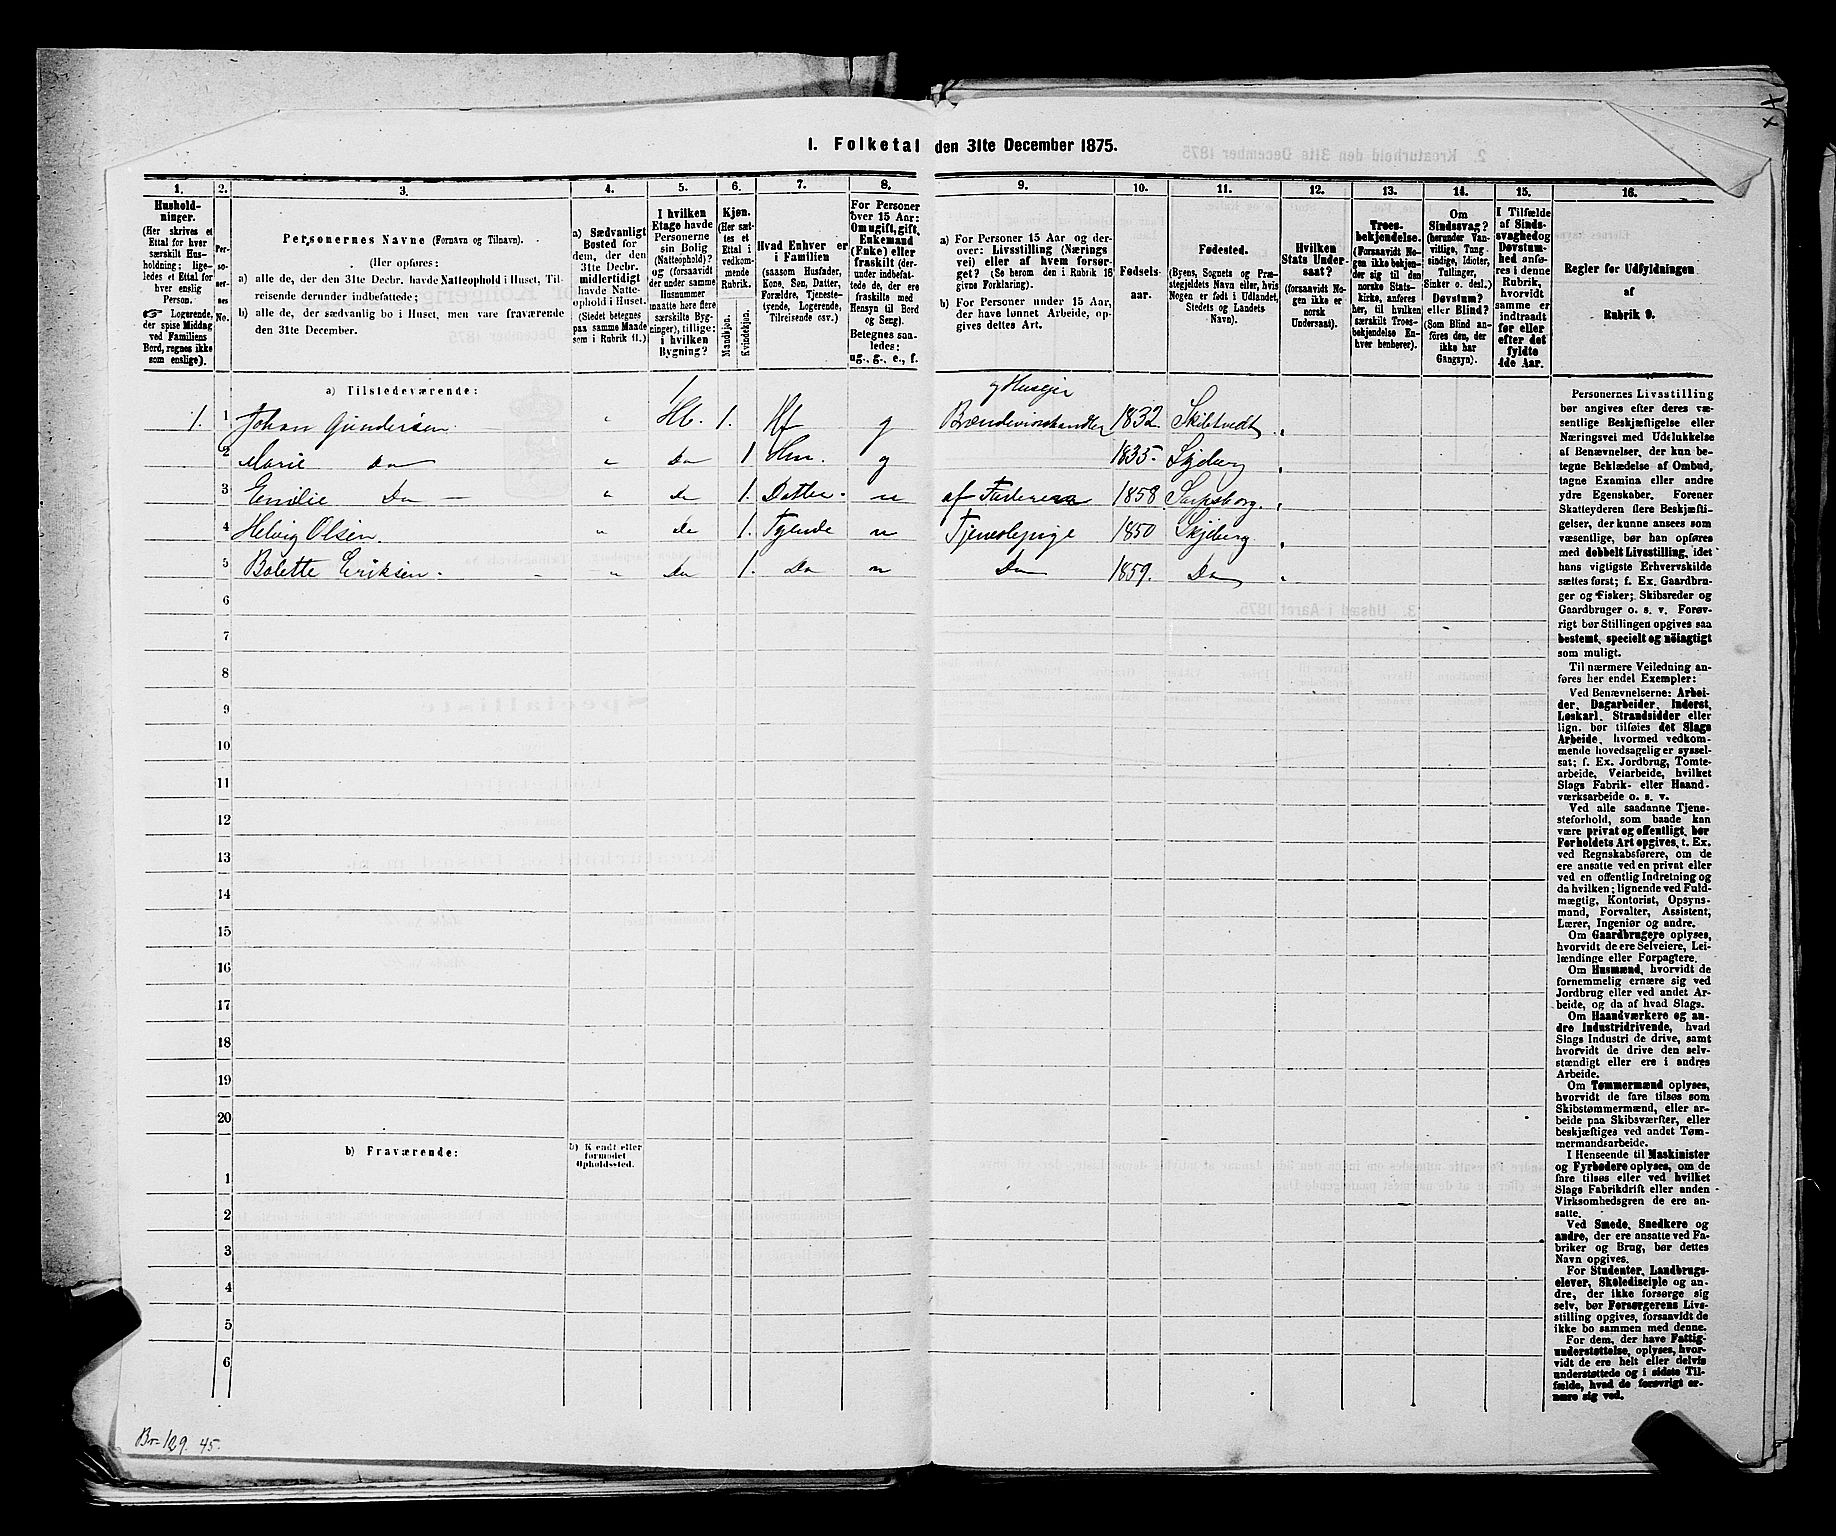 1. Folketal den 31te December 1875.
1.
2.
3.
4.
5.
6.
7.
8.
9.
10.
11.
12.
13.
14.
15.
16.
Hushold-
ninger.
(Her skrives et
Ettal for hver
særskilt Hus-
holdning; lige-
ledes et Ettal for
hver enslig
Person.
☞ Logerende,
der spise Middag
ved Familiens
Bord, regnes ikke
som enslige).
Per-
so-
ner-
nes
No.
Personernes Navne (Fornavn og Tilnavn).
(Her opføres:
a) alle de, der den 31te Decbr. havde Natteophold i Huset, Til-
reisende derunder indbefattede;
b) alle de, der sædvanlig bo i Huset, men vare fraværende
den 31te December.
a) Sædvanligt
Bosted for
dem, der den
31te Decbr.
midlertidigt
havde Natte-
ophold i Huset.
(Stedet betegnes
paa samme Maade
som i Rubrik 11.)
I hvilken
Etage havde
Personerne
sin Bolig
(Natteophold)?
og (forsaavidt
der under samme
Husnummer
maatte høre flere
særskilte Byg-
ninger), tillige:
i hvilken
Bygning?
Kjøn.
(Her sæt-
tes et
Ettal i
vedkom-
mende
Rubrik.
Mandkjøn.
Kvindekjøn.
Hvad Enhver er
i Familien
(saasom Husfader,
Kone, Søn, Datter,
Forældre, Tjeneste-
tyende, Logerende,
Tilreisende osv.)
For Personer
over 15 Aar:
Om ugift, gift,
Enkemand
(Enke) eller
fraskilt (der-
under indbefat-
tede de, der ere
fraskilte med
Hensyn til Bord
og Seng).
Betegnes saa-
ledes:
ug., g., e., f.
a) For Personer 15 Aar og der-
over: Livsstilling (Nærings
vei) eller af hvem forsør-
get? (Se herom den i Rubrik 16
givne Forklaring).
b) For Personer under 15 Aar,
der have lønnet Arbeide, op-
gives dettes Art.
Fødsels-
aar.
Fødested.
(Byens, Sognets og Præ-
stegjeldets Navn eller, hvis
Nogen er født i Udlandet,
Stedets og Landets
Navn).
Hvilken
Stats Under-
saat?
(forsaavidt No-
gen ikke er
norsk
Undersaat).
Troes-
bekjendelse.
(Forsaavidt No-
gen ikke bekjen-
der sig til den
norske Stats-
kirke, anføres
her, til hvilken
særskilt Troes-
bekjendelse En-
hver henhører).
Om
Sindssvag?
(herunder Van-
vittige, Tung-
sindige, Idioter,
Tullinger,
Sinker o. desl.)
Døvstum?
eller Blind?
(Som Blind an-
føres den, der
ikke har
Gangsyn).
I Tilfælde
af Sinds-
svaghed og
Døvstum-
hed anfø-
res i denne
Rubrik,
hvorvidt
samme er
indtraadt
før eller
efter det
fyldte
4de Aar.
Regler for Udfyldningen
af
Rubrik 9.
a) Tilstedeværende:
g Husejer
1. 1 Johan Gundersen " Hb. 1. Hf g Brændevinshandler 1832. Skibtvedt
2 Marie Do " Do 1 Hm. g 1835. Skjeberg
3 Emilie Do " Do 1. Datter u af Faderen 1858 Sarpsborg.
4 Helvig Olsen. " Do 1. Tyende u Tjenestepige 1850 Skjeberg
5 Bolette Eriksen. " Do 1. Do u Do 1859. Do
6
7
8
9
10
11
12
13
14
15
16
17
18
19
20
b) Fraværende:
b) Kjendt eller
formodet
Opholdssted.
1
2
3
4
5
6
Personernes Livsstilling
bør angives efter deres væ-
sentlige Beskjæftigelse eller
Næringsvei med Udelukkelse
af Benævnelser, der kun be-
tegne Beklædelse af Ombud,
tagne Examina eller andre
ydre Egenskaber. Forener
Skatteyderen flere Beskjæfti-
gelser, der kunne ansees som
væsentlige, bør han opføres
med dobbelt Livsstilling, idet
hans vigtigste Erhvervskilde
sættes først; f. Ex. Gaardbru-
ger og Fisker; Skibsreder og
Gaardbruger o. s. v. Forøv-
rigt bør Stillingen opgives saa
bestemt, specielt og nöiagtigt
som muligt.
Til nærmere Veiledning an-
føres her endel Exempler:
Ved Benævnelserne: Arbei-
der, Dagarbeider, Inderst,
Løskarl, Strandsidder eller
lign. bør tilføies det Slags
Arbeide, hvormed vedkom-
mende hovedsagelig er syssel-
sat; f. Ex. Jordbrug, Tomte-
arbeide, Veiarbeide, hvilket
Slags Fabrik- eller Haand-
værksarbeide o. s. v.
Ved alle saadanne Tjene-
steforhold, som baade kan
være privat og offentligt, bør
Forholdets Art opgives, t. Ex.
ved Regnskabsførere, om de
ere ansatte ved en privat eller
ved en offentlig Indretning og
da hvilken; lignende ved Fuld-
mægtig, Kontorist, Opsyns-
mand, Forvalter, Assistent,
Lærer, Ingeniør og andre.
Om Gaardbrugere oplyses,
hvorvidt de ere Selveiere, Lei-
lændinge eller Forpagtere.
Om Husmænd, hvorvidt de
fornemmelig ernære sig ved
Jordbrug eller ved andet Ar-
beide, og da af hvad Slags.
Om Haandværkere og an-
dre Industridrivende, hvad
Slags Industri de drive, samt
hvorvidt de drive den selv-
stændigt eller ere i andres
Arbeide.
Om Tømmermænd oplyses,
hvorvidt de fare tilsøs som
Skibstømmermænd, eller ar-
beide paa Skibsværfter, eller
beskjæftiges ved andet Tøm-
mermandsarbeide.
I Henseende til Maskinister
og Fyrbødere oplyses, om de
fare tilsøs eller ved hvilket
Slags Fabrikdrift eller anden
Virksomhedsgren de ere an-
satte.
Ved Smede, Snedkere og
andre, der ere ansatte ved Fa-
briker og Brug, bør dettes
Navn opgives.
For Studenter, Landbrugs-
elever, Skoledisciple og an-
dre, der ikke forsørge sig
selv, bør Forsørgerens Livs-
stilling opgives, forsaavidt de
ikke bo sammen med denne.
For dem, der have Fattig-
understøttelse, oplyses, hvor-
vidt de ere helt eller delvis
understøttede og i sidste Til-
fælde, hvad de forøvrigt er-
nære sig ved.
Br=129. 45.